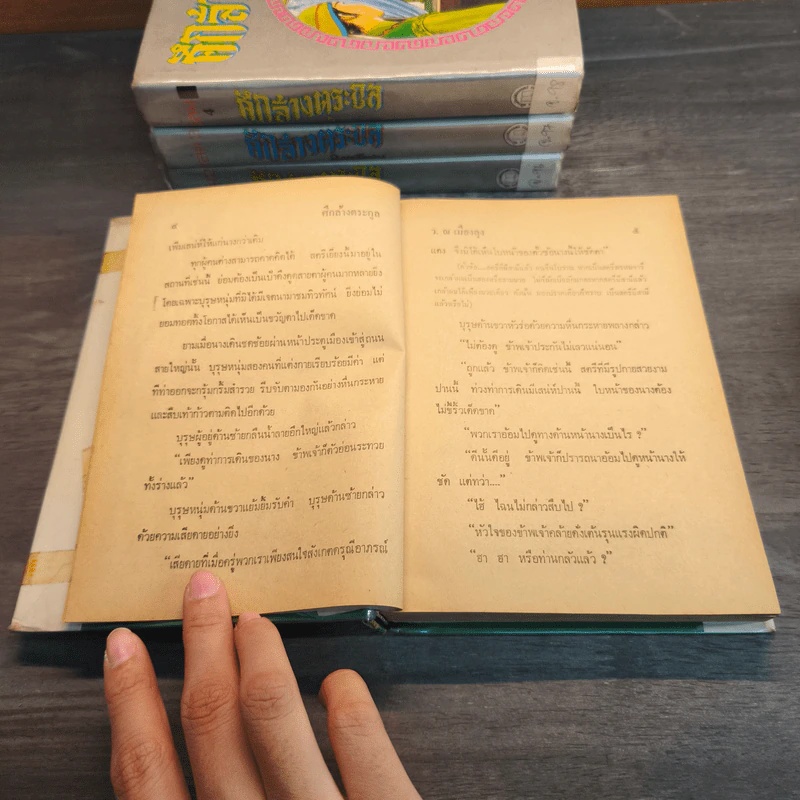 ศึกล้างตระกูล
ศึกล้างตระกูล
๔ ศึกล้างตระกูล
เพิ่มเสน่ห์ให้แก่นางกว่าเดิม
ทุกผู้คนต่างสามารถคาดคิดได้ สตรีเยี่ยงนี้มาอยู่ใน
สถานที่เช่นนี้ ย่อมต้องเป็นเป้าดึงดูดสายตาผู้คนมากหลายยิ่ง
โดยเฉพาะบุรุษหนุ่มที่มิได้มีเจตนามาชมทิวทัศน์ ยิ่งย่อมไม่
ยอมทอดทิ้งโอกาสได้เห็นเป็นขวัญตาไปเด็ดขาด
ยามเมื่อนางเดินชดช้อยผ่านหน้าประตูเมืองเข้าสู่ถนน
สายใหญ่นั้น บุรุษหนุ่มสองคนที่แต่งกายเรียบร้อยมีค่า แต่
ทีท่าออกจะกรุ้มกริ่มสำรวย รีบจับตามองกันอย่างหื่นกระหาย
และสืบเท้าก้าวตามติดไปอีกด้วย
บุรุษผู้อยู่ด้านซ้ายกลืนน้ำลายอึกใหญ่แล้วกล่าว
“เพียงดูท่าการเดินของนาง ข้าพเจ้าก็ตัวอ่อนระทวย
ทั้งร่างแล้ว”
บุรุษหนุ่มด้านขวาแย้มยิ้มรับคำ บุรุษด้านซ้ายกล่าว
ด้วยความเสียดายอย่างยิ่ง
“เสียดายที่เมื่อครู่พวกเราเพียงสนใจสังเกตดรุณีอาภรณ์
ว. ณ เมืองลุง ๕
แดง จึงมิได้เห็นใบหน้าของเจ้าซ้อนางนี้ให้ชัดตา”
บุรุษด้านขวาหัวร่อด้วยความหื่นกระหายพลางกล่าว
“ไม่ต้องดู ข้าพเจ้าประกันไม่เลวแน่นอน”
“ถูกแล้ว ข้าพเจ้าก็คิดเช่นนี้ สตรีที่มีรูปกายสวยงาม
ปานนี้ ท่วงท่าการเดินมีเสน่ห์ปานนี้ ใบหน้าของนางต้อง
ไม่ขี้ริ้วเด็ดขาด”
“พวกเราอ้อมไปดูทางด้านหน้านางเป็นไร ?”
“ดีนั้นดีอยู่ ข้าพเจ้าก็ปรารถนาอ้อมไปดูหน้านางให้
ชัด แต่ทว่า....”
“ไฮ้ ไฉนไม่กล่าวสืบไป ?”
“หัวใจของข้าพเจ้าคล้ายดั่งเต้นรุนแรงผิดปกติ”
“ฮา ฮา หรือท่านกลัวแล้ว ?”